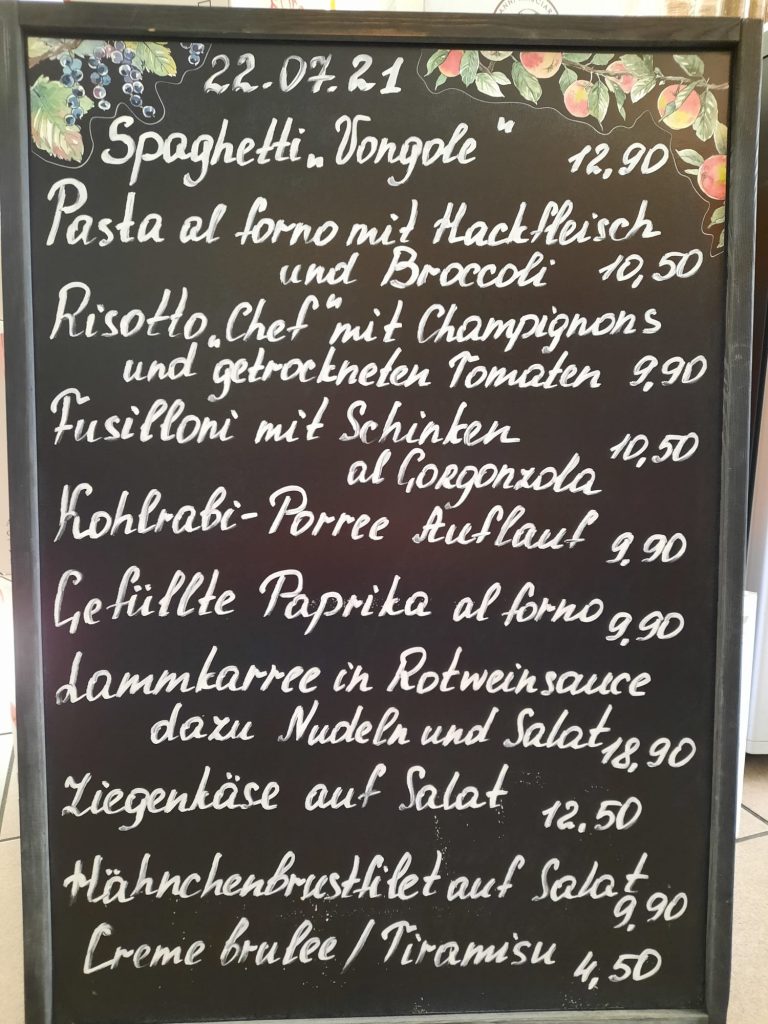 22.07.21
Spaghetti „Vongole“ 12,90
Pasta al forno mit Hackfleisch
und Broccoli 10,50
Risotto „Chef“ mit Champignons
und getrockneten Tomaten 9,90
Fusilloni mit Schinken
al Gorgonzola 10,50
Kohlrabi-Porree Auflauf 9.90
Gefüllte Paprika al forno 9,90
Lammkarree in Rotweinsauce
dazu Nudeln und Salat 18,90
Ziegenkäse auf Salat 12.50
Hähnchenbrustfilet auf Salat 9,90
Creme brulee / Tiramisu 4,50